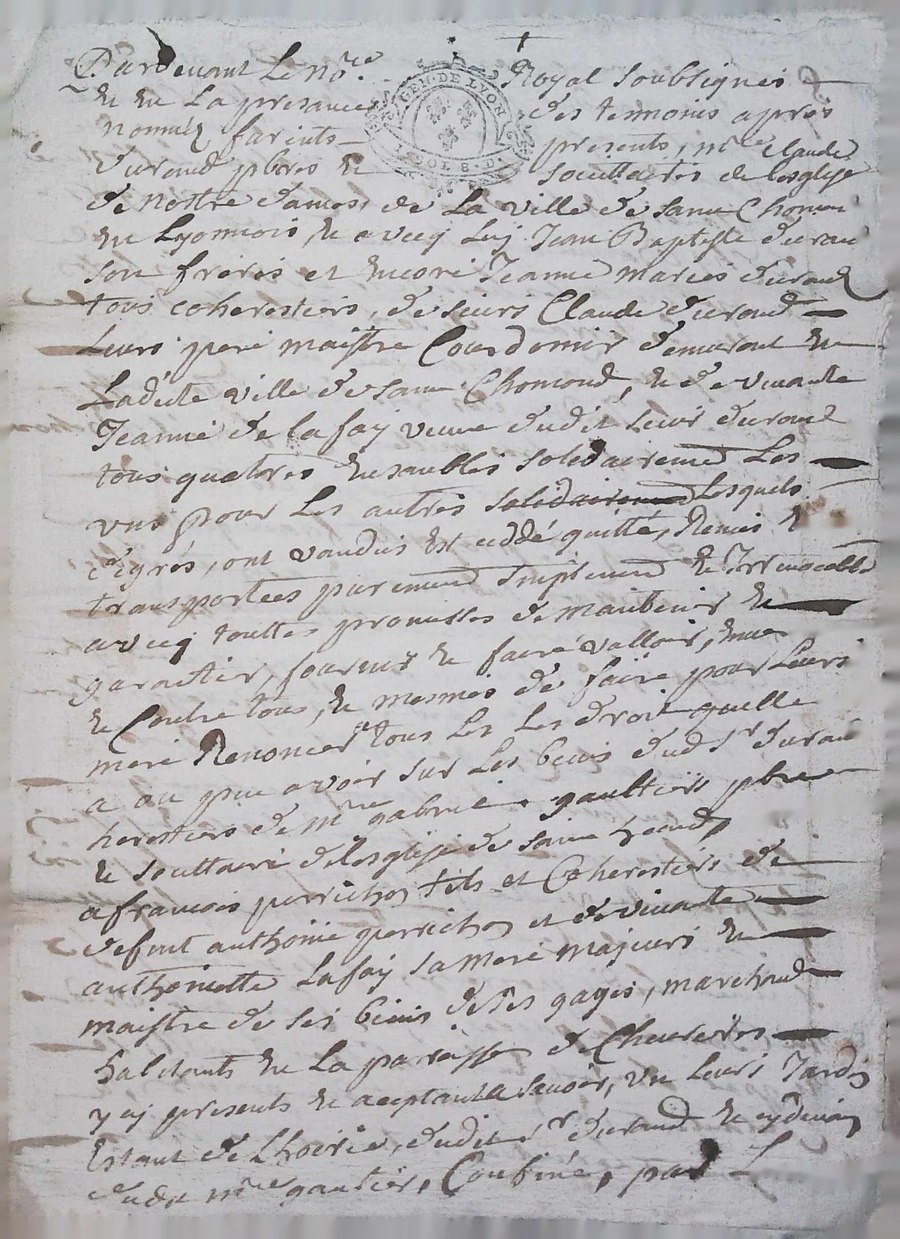 Pardevant Le no.re Royal soubsignes
Et En La presance des temmoins apres
nommés furents presents, m.re Claude
durand pbres et socittaires de lesglise
de nostre dames, de La ville de saint Chomon
En Lyonnois, Et avecq Luy Jean Baptiste duran
son freres et Encore Jeanne maries durand
tous coherestiers, de sieurs Claude durand
Leurs pere maistre Courdonnier demurant En
Ladicte ville de saint Chomond, Et de vivante
Jeanne de la fay veuve dudit sieur durand
tous quatres Ensanbles solidairemend Les
uns pour Les autres solidairemend Lesquels
de grés, ont vandus Et ceddé quitté, Remis Et
transportées purement simplement Et Irrevocable
avecq touttes promesses de maintenir Et
garantir, fournir Et faire valloir, Enve
Et Contre tous, Et mesmes de faire pour Leurs
mere Renoncer tous Les Les droit quelle
a ou peu avoir sur Les biens dud s.r duran
herestiers de m.re gabriel gaultiers pbre
Et socittaire de lesglise de saint
a francois perrichon fils et Coherestiers de
defunt anthoine perrichon et de vivante
anthoinette Lafay sa mere majeurs Et
maistre de ses biens de ses gages, marchand
habitants En La paroisse de
y cy presents Et aceptant savoir, un Leurs Jardin
Estant de Lhoirie, dudit s.r durand Et
dudit m.re gautier, Confiné, par L
GEN. DE LYON